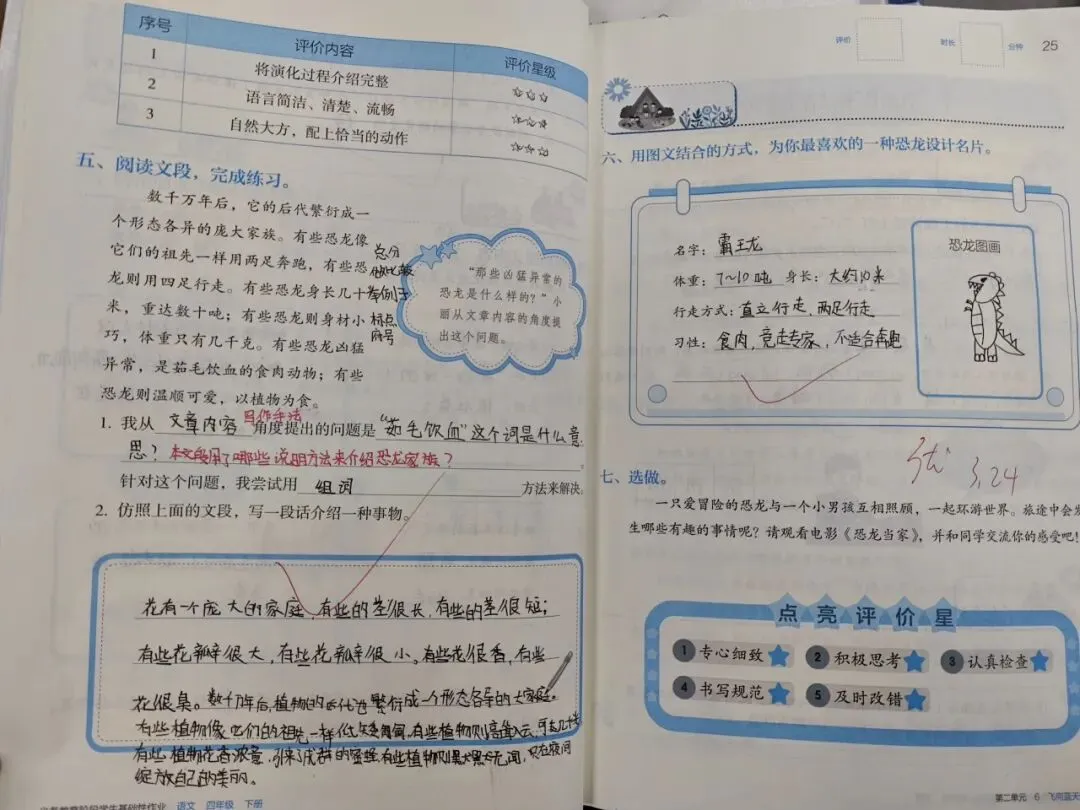 序号 评价内容 评价星级
1 将演化过程介绍完整 ☆☆☆
2 语言简洁、清楚、流畅 ☆☆☆
3 自然大方，配上恰当的动作 ☆☆☆
五、阅读文段，完成练习。
数千万年后，它的后代繁衍成一
个形态各异的庞大家族。有些恐龙像
它们的祖先一样用两足奔跑，有些恐
龙则用四足行走。有些恐龙身长几十
米，重达数十吨；有些恐龙则身材小
巧，体重只有几千克。有些恐龙凶猛
异常，是茹毛饮血的食肉动物；有些
恐龙则温顺可爱，以植物为食。
总分
作比较
举例子
标点
符号
“那些凶猛异常的
恐龙是什么样的？”小
丽从文章内容的角度提
出这个问题。
写作手法
1. 我从 文章内容 角度提出的问题是“茹毛饮血”这个词是什么意
思？本文段用了哪些说明方法来介绍恐龙家族？
针对这个问题，我尝试用 组词 方法来解决。
2. 仿照上面的文段，写一段话介绍一种事物。
花有一个庞大的家庭，有些的茎很长，有些的茎很短；
有些花瓣很大，有些花瓣很小。有些花很香，有些
花很臭。数千万年后，植物的后代繁衍成一个形态各异的大家庭。
有些植物像它们的祖先一样低矮，有些植物则高耸入云，可达几十米
有些植物花香浓郁，引来了成群的蜜蜂，有些植物则默默无闻，只在夜间
绽放自己的美丽。
义务教育阶段学生基础性作业 语文 四年级 下册
评价 时长 分钟 25
六、用图文结合的方式，为你最喜欢的一种恐龙设计名片。
名字：霸王龙
体重：7~10吨 身长：大约10米
行走方式：直立行走，两足行走
习性：食肉，竞走专家，不适合奔跑
恐龙图画
优 3.24
七、选做。
一只爱冒险的恐龙与一个小男孩互相照顾，一起环游世界。旅途中会发
生哪些有趣的事情呢？请观看电影《恐龙当家》，并和同学交流你的感受吧！
点亮评价星
1 专心细致 2 积极思考 3 认真检查
4 书写规范 5 及时改错
第二单元 6 飞向蓝天